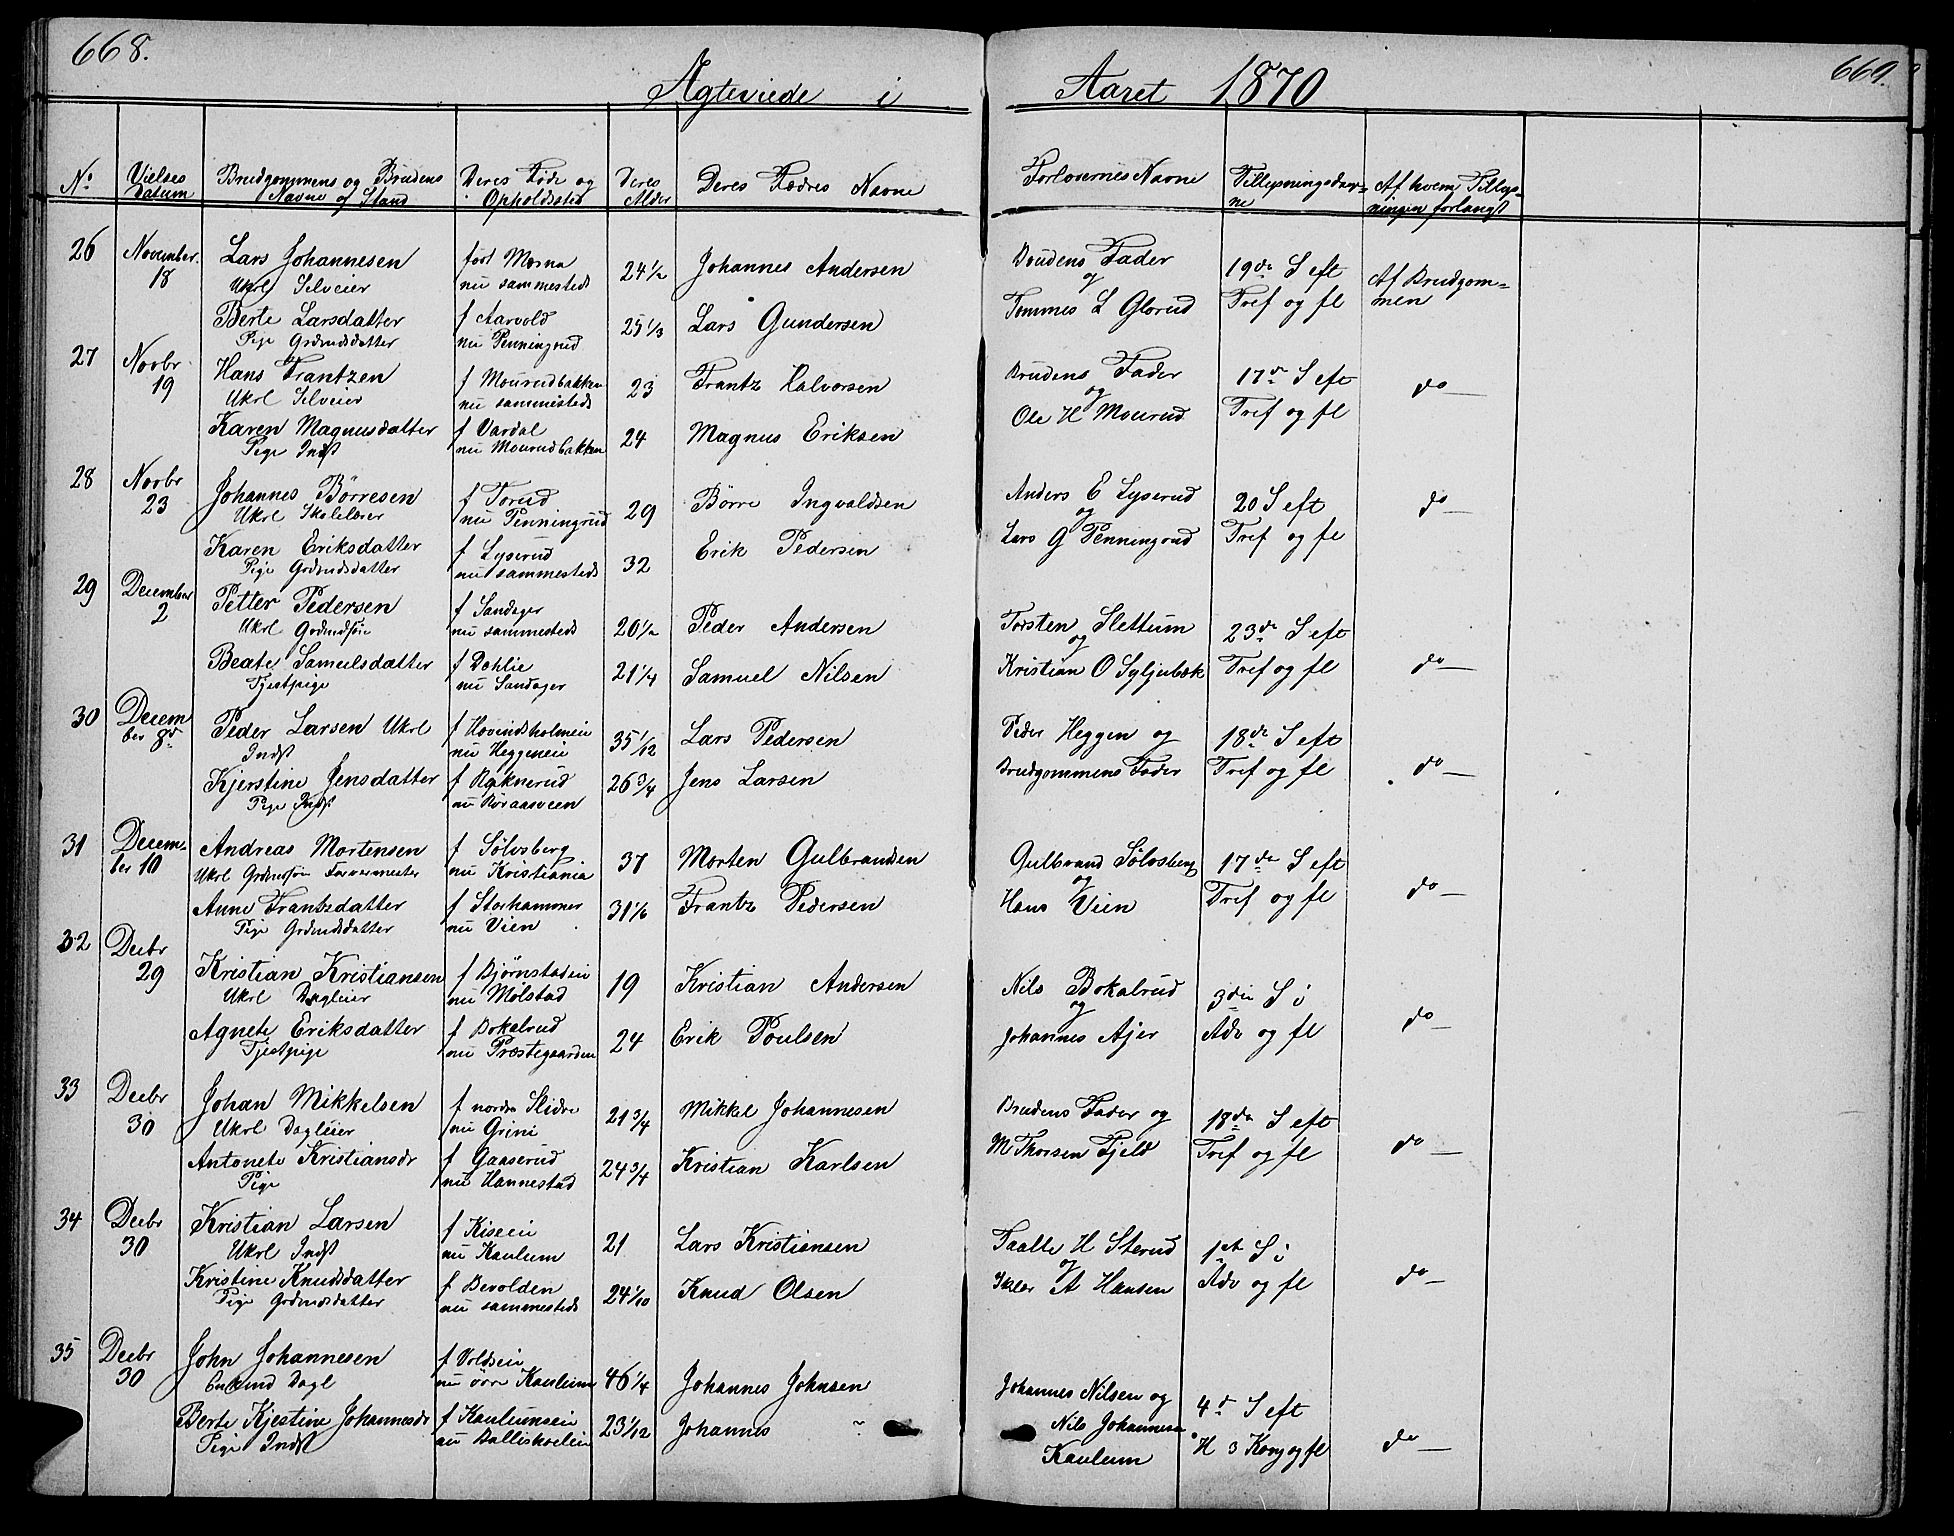 668.
669.
Ægteviede i Aaret 1870
No
Vielses Datum
Brudgommens og Brudens Navne og Stand
Deres Føde og Opholdssted
Deres Alder
Deres Fædres Navne
Forlovernes Navne
Tillysningsdagene
Af hvem Tillysningen forlangt
26 November 18 Lars Johannesen Ukrl Selveier
nu sammesteds 24 1/2 Johannes Andersen
Brudens Fader og Tommes L Glorud
19de S eft Tref og fl
Af Brudgommen
Berte Larsdatter Pige Grdmdsdatter
f Aarvold nu Penningrud 25 1/3 Lars Gundersen
27 Novbr 19 Hans Frantzen Ukrl Selveier
f Mourudbakken nu sammesteds 23 Frantz Halvorsen
Brudens Fader og Ole H Mourud
17de S eft Tref og fl
do
Karen Magnusdatter Pige Indst
f Vardal nu Mourudbakken 24 Magnus Eriksen
28 Novbr 23 Johannes Börresen Ukrl Skolelærer
f Torud nu Penningrud 29 Börre Ingvaldsen
Anders E Lyserud og Lars G Penningrud
20 S eft Tref og fl
do
Karen Eriksdatter Pige Grdmdsdatter
f Lyserud nu sammesteds 32 Erik Pedersen
29 December 2 Petter Pedersen Ukrl Grdmdsön
f Sandager nu sammesteds 20 1/2 Peder Andersen
Torsten Slettum og Kristian O Syljubæk
23de S eft Tref og fl
do
Beate Samuelsdatter Tjestpige
f Dahlie nu Sandager 21 1/4 Samuel Nilsen
30 December 8de Peder Larsen Ukrl Indst
f Hovindsholmeie nu Heggeneie 35 1/12 Lars Pedersen
Peder Heggen og Brudgommens Fader
18de S eft Tref og fl
do
Kjerstine Jensdatter Pige Indst
f Baknerud nu Böraasveen 26 3/4 Jens Larsen
31 December 10 Andreas Mortensen Ukrl Grdmdsön Farvermester
f Sölvsberg nu Kristiania 37 Morten Gulbrandsen
Gulbrand Sölvsberg og Hans Vien
17de S eft Tref og fl
do
Anne Frantzdatter Pige Grdmdsdatter
f Storhammer nu Vien 31 1/6 Frantz Pedersen
32 Decbr 29 Kristian Kristiansen Ukrl Dagleier
f Bjørnstadeie nu Mölstad 19 Kristian Andersen
Nils Bokalrud og Johannes Ajer
3die S i Adv og fl
do
Agnete Eriksdatter Tjestpige
f Bokalrud nu Præstegaarden 24 Erik Poulsen
33 Decbr 30 Johan Mikkelsen Ukrl Dagleier
f nordre Slidre nu Grini 21 3/4 Mikkel Johannesen
Brudens Fader og M Thorsen Fjeld
18de S eft Tref og fl
do
Antonete Kristiansdr Pige
f Gaaserud nu Hannestad 24 3/4 Kristian Karlsen
34 Decbr 30 Kristian Larsen Ukrl Indst
f Kiseeie nu Kaulum 21 Lars Kristiansen
Faalle H Sterud og A Hansen
1ste S i Adv og fl
do
Kristine Knudsdatter Pige Grdmdsdatter
f Bevolden nu sammesteds 24 1/10 Knud Olsen
35 Decbr 30 John Johannesen Enkmd Dagl
f Voldseie nu övre Kaulum 46 1/4 Johannes Johnsen
Johannes Nilsen og Nils Johannesen Kaulum
4de S eft H 3 Kong og fl
do
Berte Kjestine Johannesdr Pige Indst
f Kaulumseie nu Balliskoeleie 23 1/12 Johannes